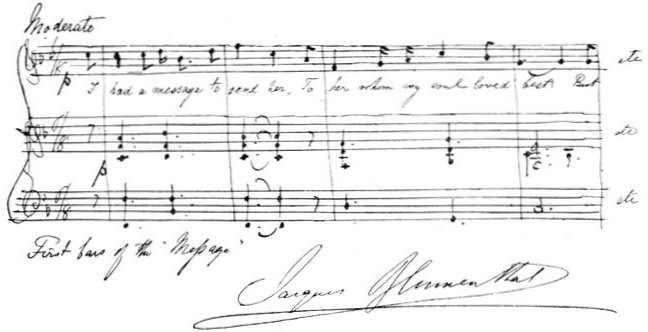 Moderato
p I had a message to send her, To her whom my soul loved best But etc
etc
p
etc
First bars of the "Message"
Jacques Blumenthal